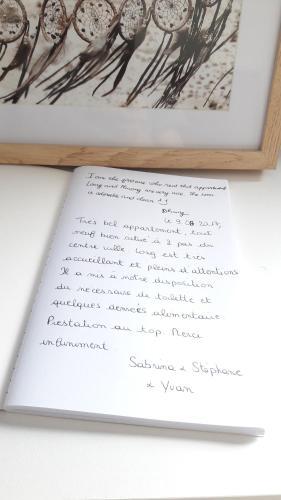 I am the first one who rent this appartment
Long and Phuong are very nice. The room
is adorable and clean !!
le 9 08 2017,
Très bel appartement, tout
neuf bien situé à 2 pas du
centre ville Long est très
accueillant et pleins d'attentions
Il a mis à notre disposition
du nécessaire de toilette et
quelques denrées alimentaire.
Prestation au top. Merci
infiniment.
Sabrina & Stéphane
& Yvan